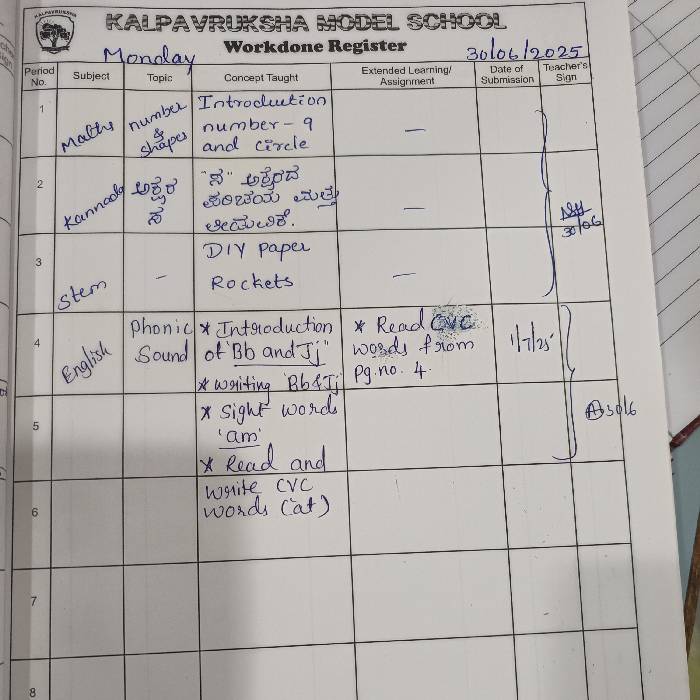 KALPAVRUKSHA MODEL SCHOOL
Workdone Register
Monday 30/06/2025
Period No. Subject Topic Concept Taught Extended Learning/ Assignment Date of Submission Teacher's Sign
1 Maths number & shapes Introduction number - 9 and circle —
2 Kannada ಅಕ್ಷರ ಸ "ಸ" ಅಕ್ಷರದ ಪರಿಚಯ ಮತ್ತು — 30/06
3 Stem - DIY Paper Rockets —
4 English Phonic Sound * Introduction of "Bb and Jj" * writing Bb & Jj * Read CVC words from Pg.no. 4. 1/7/25
5 * Sight words 'am' * Read and 30/6
6 write CVC words ('at)
7
8